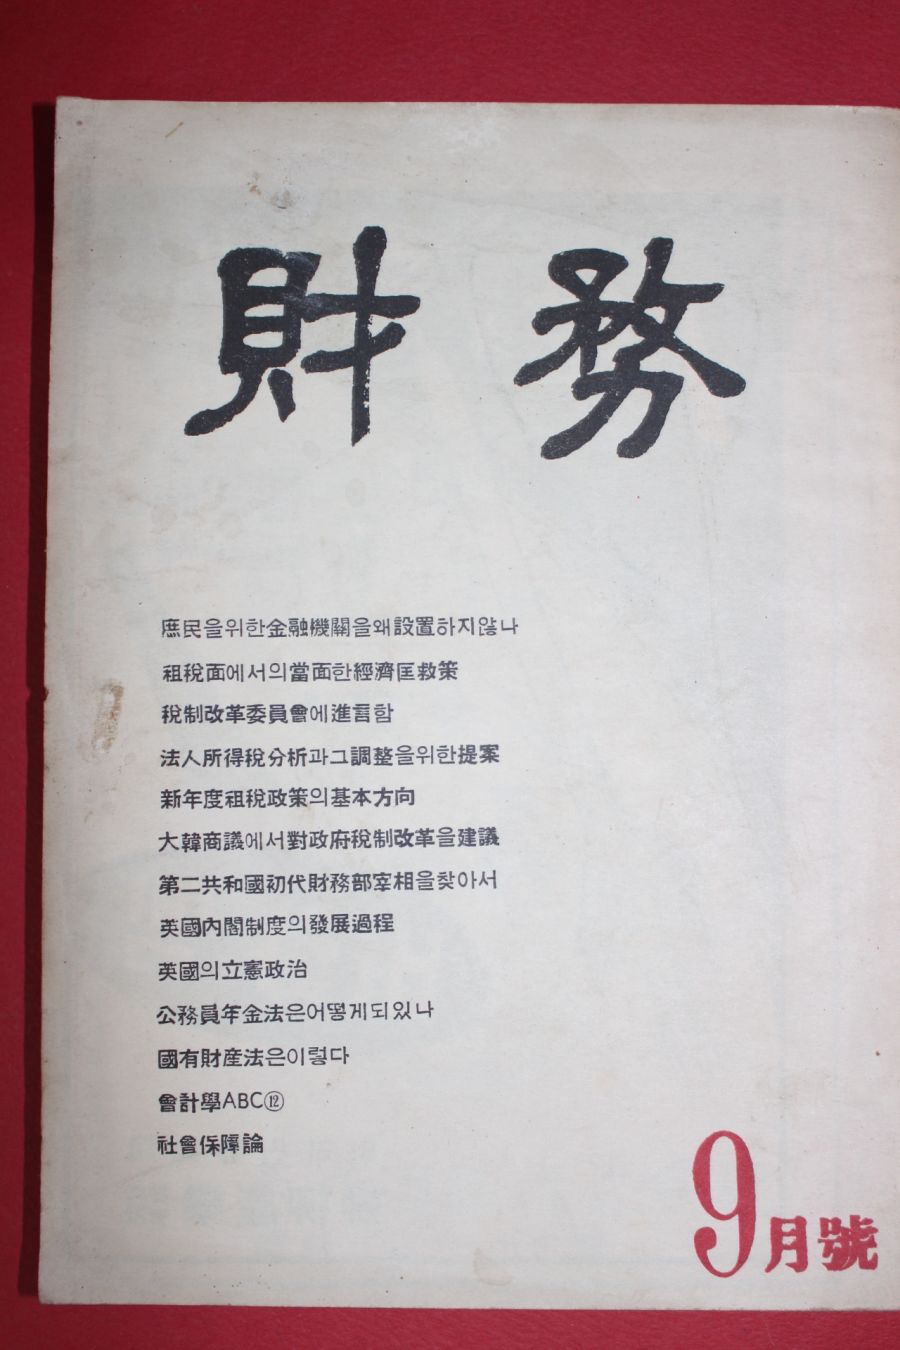 財務
庶民을위한金融機關을왜設置하지않나
租稅面에서의當面한經濟匡救策
稅制改革委員會에進言함
法人所得稅分析과그調整을위한提案
新年度租稅政策의基本方向
大韓商議에서對政府稅制改革을建議
第二共和國初代財務部宰相을찾아서
英國內閣制度의發展過程
英國의立憲政治
公務員年金法은어떻게되있나
國有財産法은이렇다
會計學ABC⑫
社會保障論
9月號